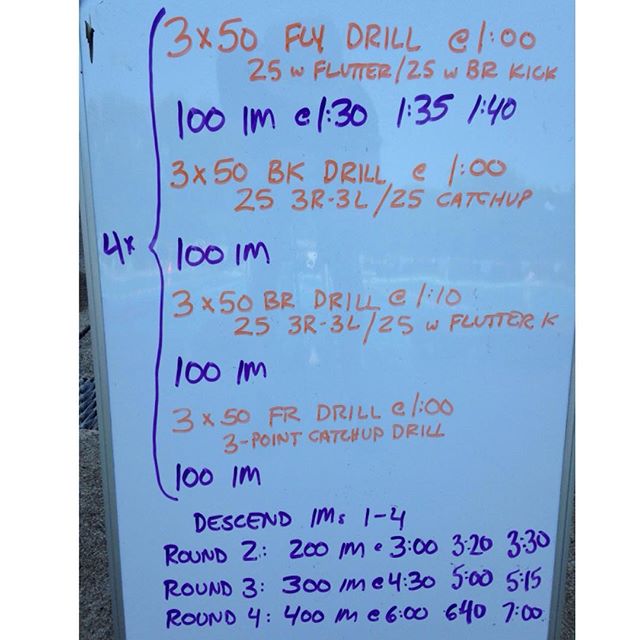 3x50 FLY DRILL @ 1:00
25 w FLUTTER/25 w BR KICK
100 IM @ 1:30 1:35 1:40
3x50 BK DRILL @ 1:00
25 3R-3L/25 CATCHUP
4x
100 IM
3x50 BR DRILL @ 1:10
25 3R-3L/25 w FLUTTER K
100 IM
3x50 FR DRILL @ 1:00
3-POINT CATCHUP DRILL
100 IM
DESCEND IMs 1-4
ROUND 2: 200 IM @ 3:00 3:20 3:30
ROUND 3: 300 IM @ 4:30 5:00 5:15
ROUND 4: 400 IM @ 6:00 6:40 7:00